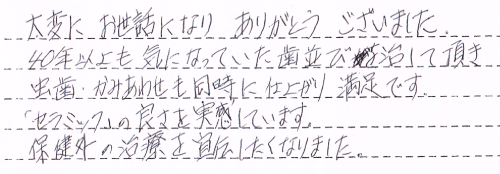 大変に お世話になり ありがとう ございました.
40年以上も気になっていた歯並び治して頂き
虫歯・かみあわせも同時に仕上がり 満足です.
「セラミック」の良さを実感しています.
保健外の治療を宣伝したくなりました.